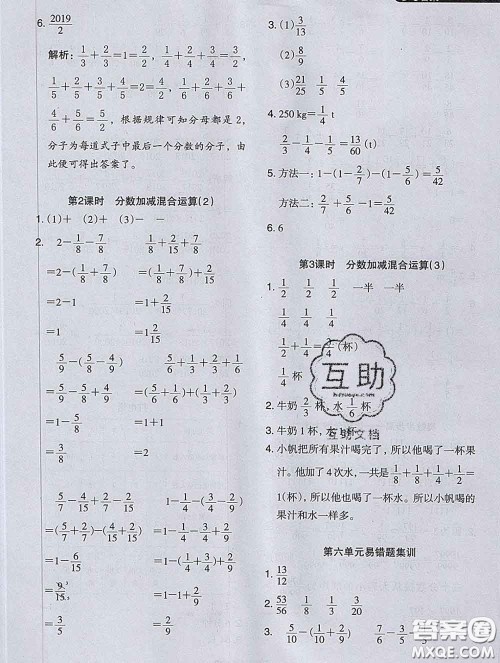 6. 2019/2
解析:
分母都是2,
根据规律可知
分子为每道式子中最后一个分数的分子,由
此便可得出答案了。
第2课时 分数加减混合运算(2)
1. (1)+ (2)+ (3)- -
2. 2-1/8-7/8 1/8+2/15+7/8
=2-(1/8+7/8) =(1/8+7/8)+2/15
=2-1 =1+2/15
=1 =1 2/15
5/9-(5/8-4/9) 5/6+2/3+1/6+1/3
=(5/9+4/9)-5/8 =(5/6+1/6)+(2/3+1/3)
=1-5/8 =1+1
=3/8 =2
5/7-4/15+2/7-2/15 1-1/4-3/4+2/9
=(5/7+2/7)-(4/15+2/15) =1-(1/4+3/4)+2/9
=1-6/15 =1-1+2/9
=9/15 =2/9
=3/5
3. (1) 3/10
(2)
(3) 21/25 1/5 4/5
4. 250 kg=1/4 t
2/3-1/4=13/60 (t)
5. 方法一:1-(1-2/7)-(1-5/6)=5/42
方法二:2/7+5/6-1=5/42
6. 6
第3课时 分数加减混合运算(3)
1. 1/2 1/2 1/2 一半 一半
1/4 1/4 1/4
1/2+1/4=3/4(杯)
1/4杯
2. 牛奶 杯,水1/6杯
3. 牛奶1杯,水 杯
4. 小帆把所有果汁喝完了,所以他喝了一杯果
汁。他加了4次水,一共是1/8+1/8+1/4+1/2=
1(杯),所以他也喝了一杯水。所以小帆喝的
果汁和水一样多。
第六单元易错题集训
1. 13/12
2. 53/56 1/8 1/4 3/20
3. 5/10-(1/5+3/10) 6/7-5/9+1/7-4/9
互助
互助文档
答案圈
MXQE.COM